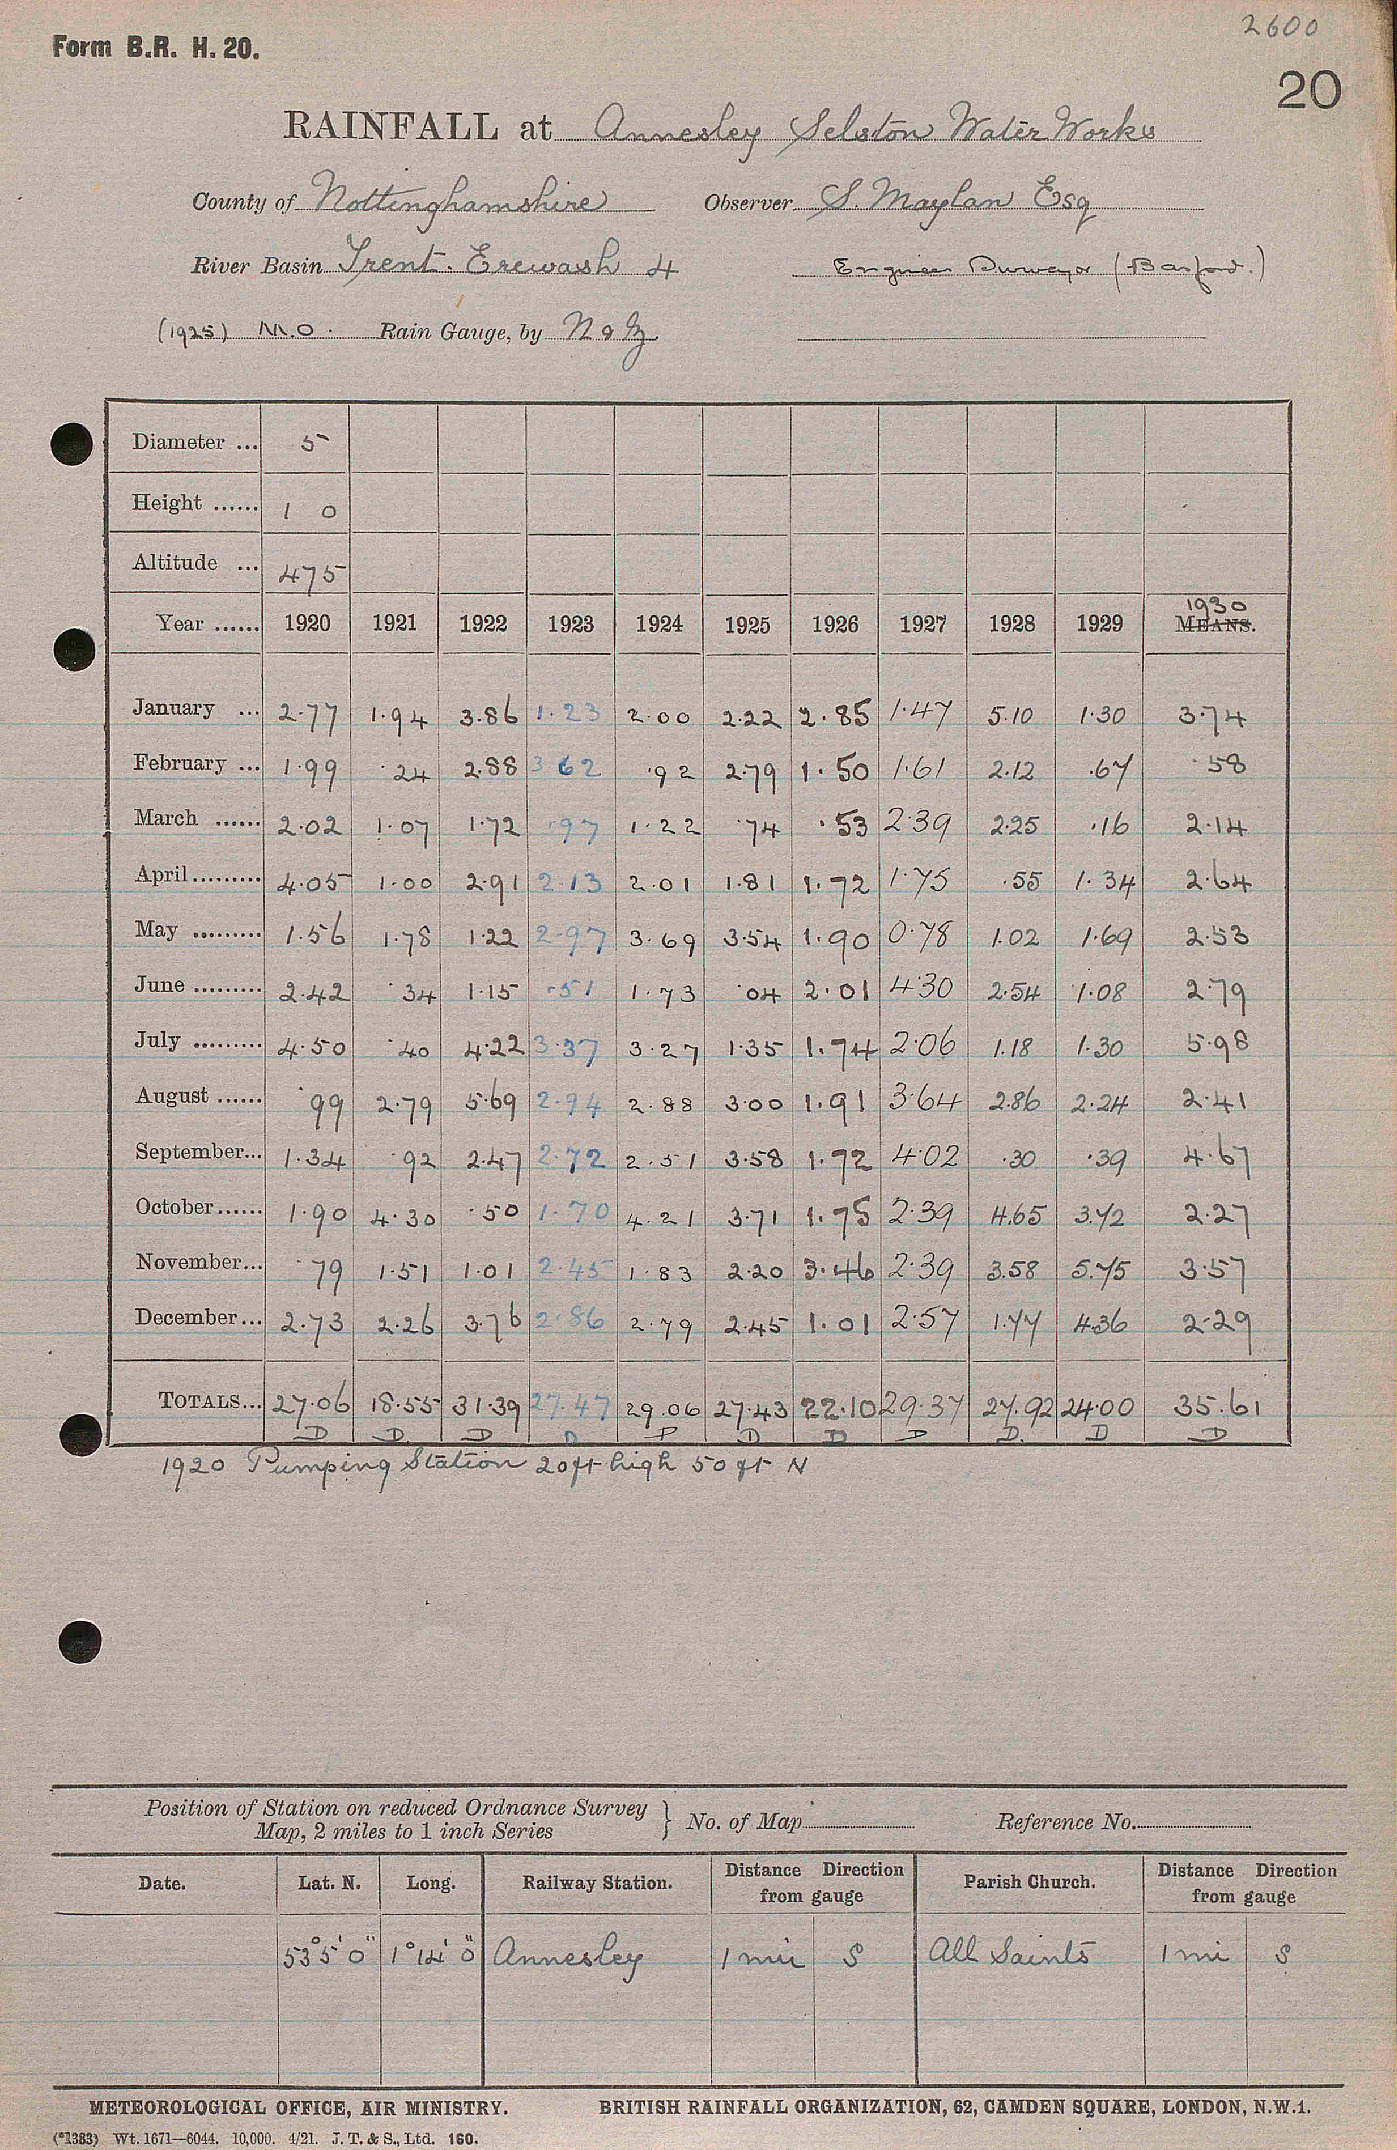 2600
Form B.R. H. 20.
20
RAINFALL at Annesley Selston Water Works
County of Nottinghamshire Observer S. Maylan Esq
River Basin Trent. Erewash 4 Engineer Surveyor (Basford.)
(1925) M.O. Rain Gauge, by N & Z
Diameter ... 5
Height ...... 1 0
Altitude ... 475
Year ...... 1920 1921 1922 1923 1924 1925 1926 1927 1928 1929 1930 MEANS.
January ... 2.77 1.94 3.86 1.23 2.00 2.22 2.85 1.47 5.10 1.30 3.74
February ... 1.99 .24 2.88 3 62 .92 2.79 1.50 1.61 2.12 .67 .58
March ...... 2.02 1.07 1.72 .97 1.22 .74 .53 2.39 2.25 .16 2.14
April......... 4.05 1.00 2.91 2.13 2.01 1.81 1.72 1.75 .55 1.34 2.64
May ......... 1.56 1.78 1.22 2.97 3.69 3.54 1.90 0.78 1.02 1.69 2.53
June ......... 2.42 .34 1.15 .51 1.73 .04 2.01 4.30 2.54 1.08 2.79
July ......... 4.50 .40 4.22 3.37 3.27 1.35 1.74 2.06 1.18 1.30 5.98
August ...... .99 2.79 5.69 2.94 2.88 3.00 1.91 3.64 2.86 2.24 2.41
September... 1.34 .92 2.47 2.72 2.51 3.58 1.72 4.02 .30 .39 4.67
October...... 1.90 4.30 .50 1.70 4.21 3.71 1.75 2.39 4.65 3.72 2.27
November... .79 1.51 1.01 2.45 1.83 2.20 3.46 2.39 3.58 5.75 3.57
December... 2.73 2.26 3.76 2.86 2.79 2.45 1.01 2.57 1.77 4.36 2.29
TOTALS... 27.06 18.55 31.39 27.47 29.06 27.43 22.10 29.37 27.92 24.00 35.61
D D D D P D D D D. D D
1920 Pumping Station 20ft high 50 ft N
Position of Station on reduced Ordnance Survey Map, 2 miles to 1 inch Series } No. of Map Reference No.
Date. Lat. N. Long. Railway Station. Distance Direction from gauge Parish Church. Distance Direction from gauge
53° 5' 0" 1° 14' 0" Annesley 1 mi S All Saints 1 mi S
METEOROLOGICAL OFFICE, AIR MINISTRY. BRITISH RAINFALL ORGANIZATION, 62, CAMDEN SQUARE, LONDON, N.W.1.
(*1383) Wt. 1671—6044. 10,000. 4/21. J. T. & S., Ltd. 160.